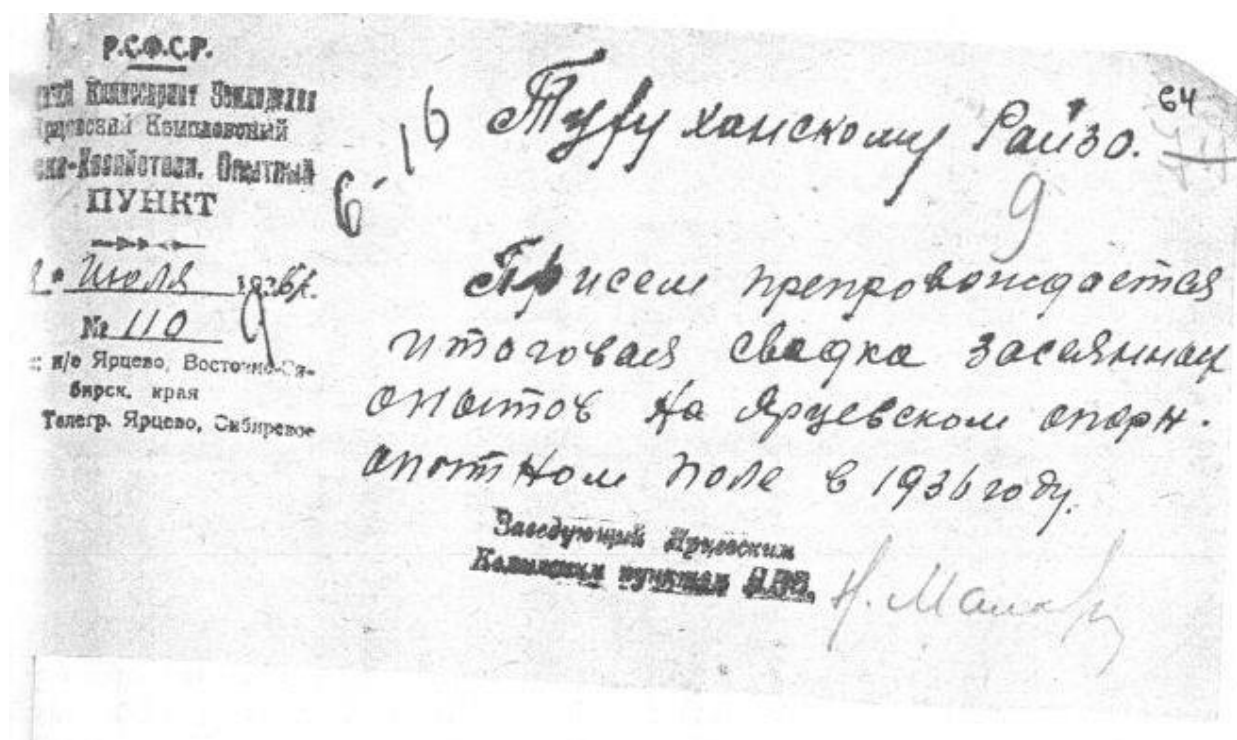 Р.С.Ф.С.Р.
Комиссариат Земледелия
Комплексный
Опытный
ПУНКТ
Июля 1936 г.
№ 110
п/о Ярцево, Восточно-Си-
бирск. края
Телегр. Ярцево, Сибирское
64
16 Туруханскому Райзо.
6
9
При сем препровождается
итоговая сводка засеянных
опытов на Ярцевском опорн.
опытном поле в 1936 году.
Заведующий Ярцевским
пунктом
Н.